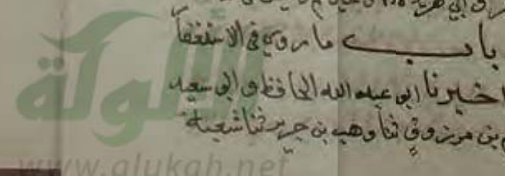 باب ما روي في الاستغفار
اخبرنا ابو عبد الله الحافظ و ابو سعيد
بن مرزوق ثنا وهب بن جرير ثنا شعبة
الألوكة
www.alukah.net